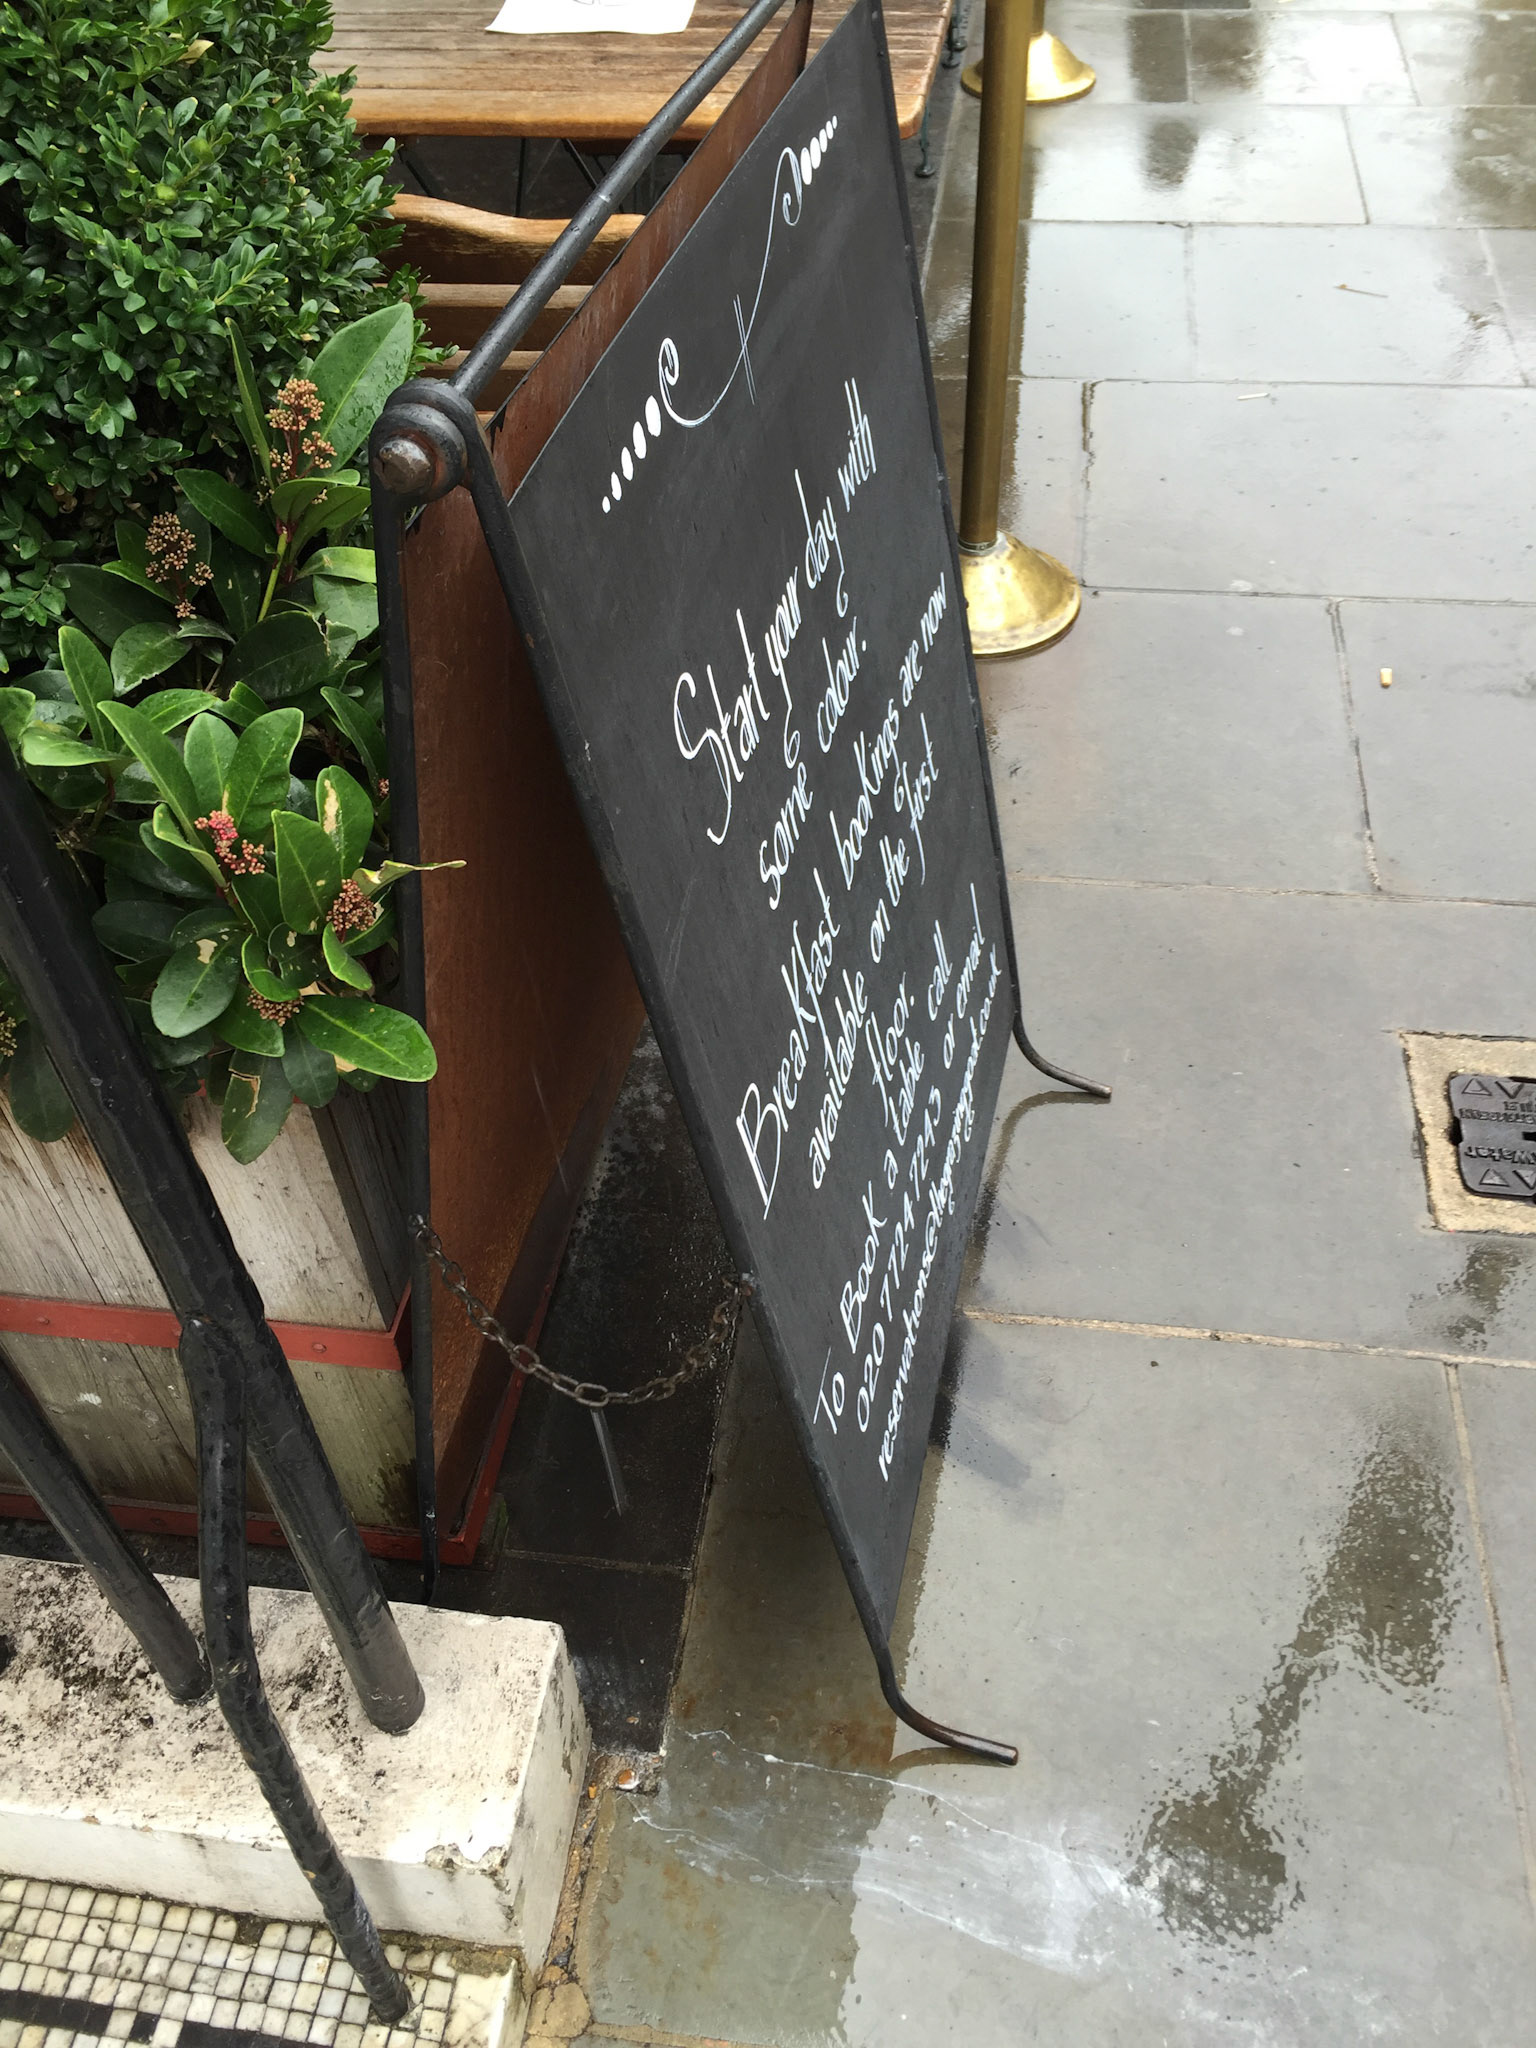 Start your day with
some colour.
Breakfast bookings are now
available on the first
floor.
To Book a table call
020 7724 7243 or email
reservations@thegrazinggoat.co.uk
Water